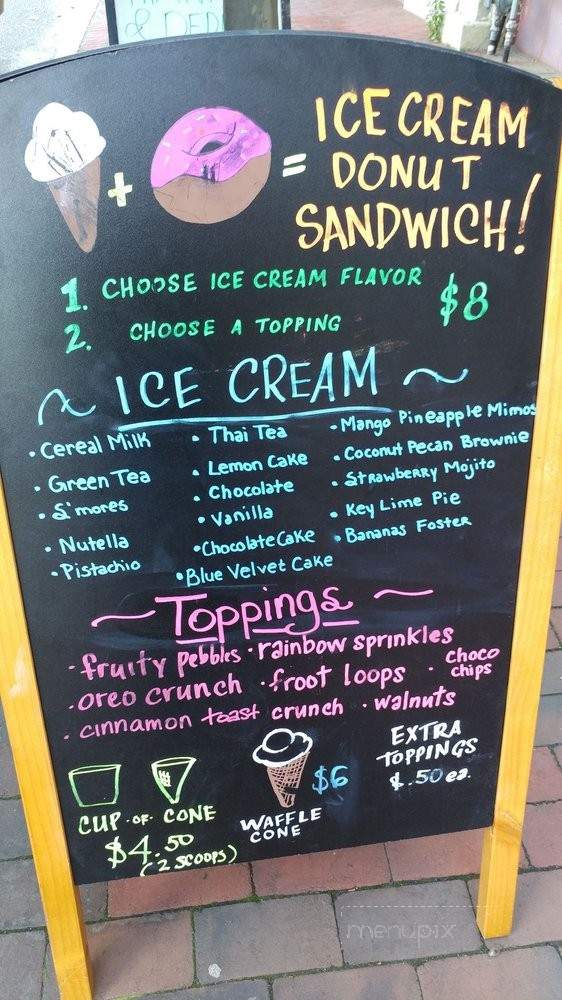 & DED
ICE CREAM
DONUT
SANDWICH!
+ =
1. CHOOSE ICE CREAM FLAVOR
2. CHOOSE A TOPPING
$8
~ ICE CREAM ~
• Cereal Milk
• Green Tea
• S'mores
• Nutella
• Pistachio
• Thai Tea
• Lemon Cake
• Chocolate
• Vanilla
• Chocolate Cake
• Blue Velvet Cake
• Mango Pineapple Mimos
• Coconut Pecan Brownie
• Strawberry Mojito
• Key Lime Pie
• Bananas Foster
~ Toppings ~
• fruity pebbles • rainbow sprinkles
• oreo crunch • froot loops • choco chips
• cinnamon toast crunch • walnuts
CUP • OF • CONE
$4.50
(2 SCOOPS)
$6
WAFFLE
CONE
EXTRA
TOPPINGS
$.50 ea.
menupix